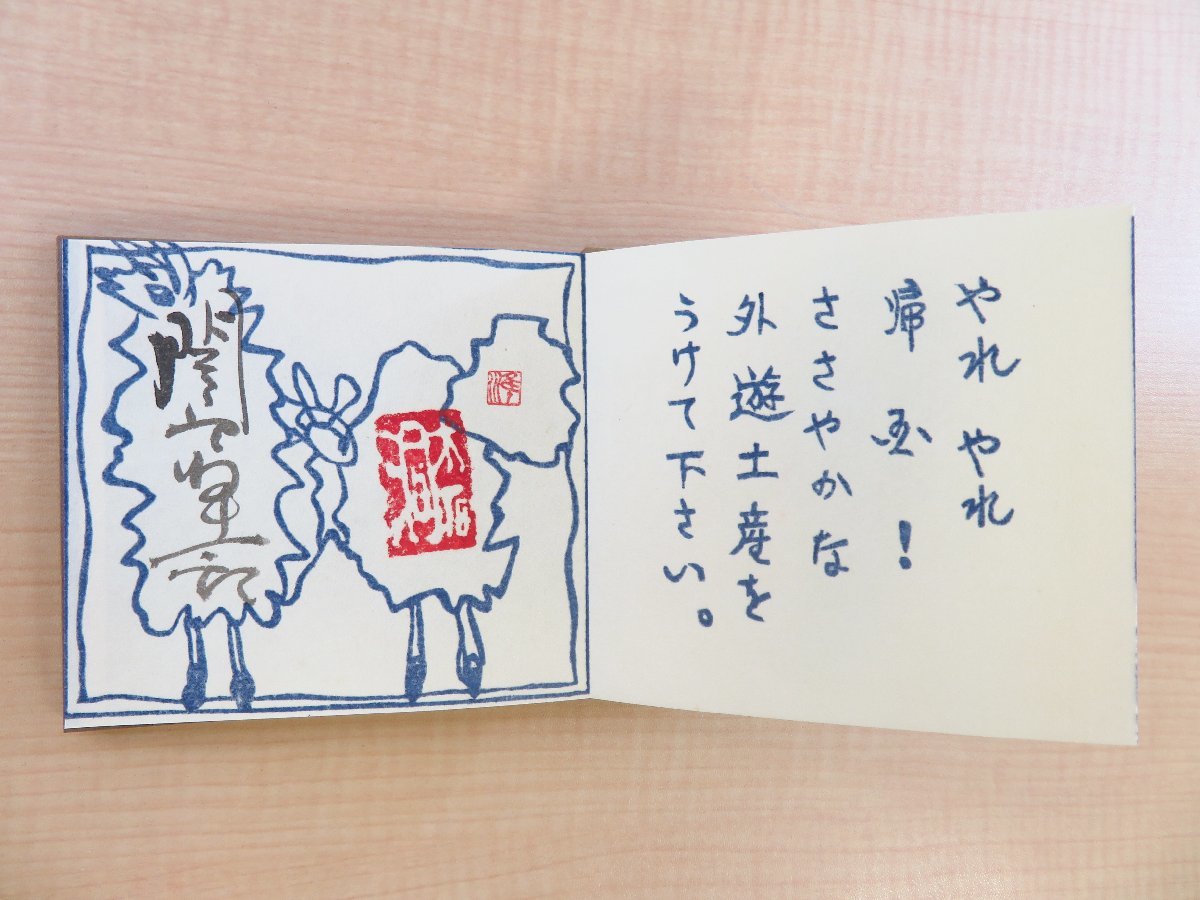 やれ やれ
帰国！
ささやかな
外遊土産を
うけて下さい。
関野準一郎